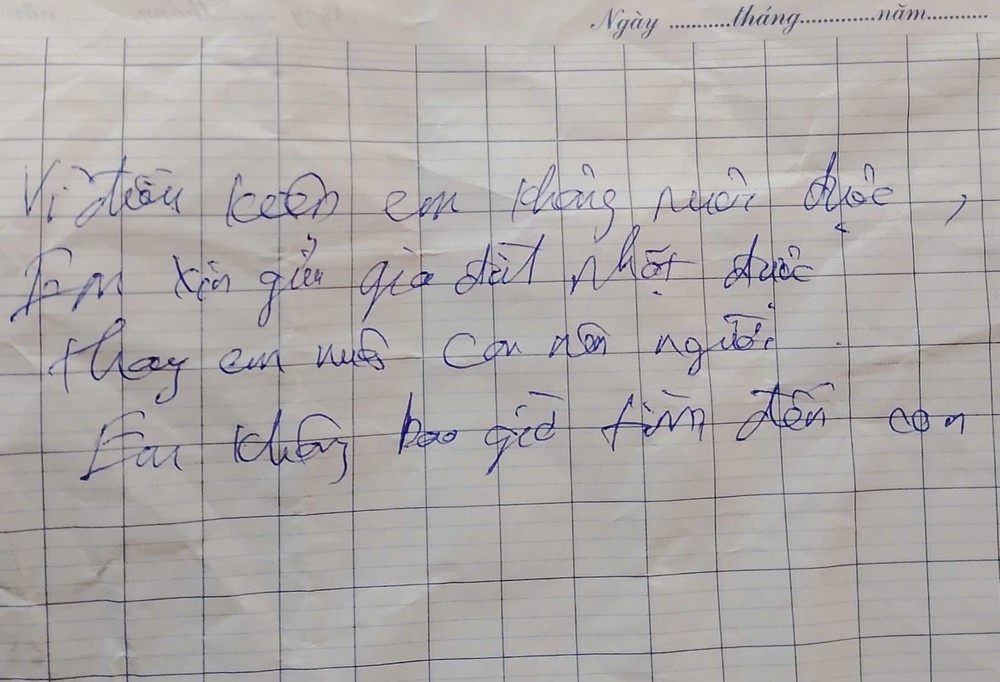 Ngày ..........tháng.............năm...........
Vì điều kiện em không nuôi được,
Em xin gửu gia đàt nhặt được
thay em nuôi con nên người
Em không bao giờ tìm đến con